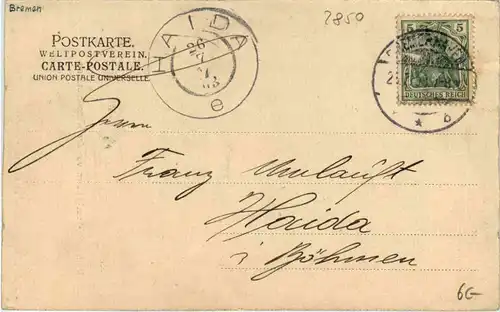 Bremen
2850
POSTKARTE.
WELTPOSTVEREIN.
CARTE-POSTALE.
UNION POSTALE UNIVERSELLE.
HAIDA
26
7
e
5 5
DEUTSCHES REICH
b
Herrn
Franz Umlauft
Haida
i Böhmen
6G-